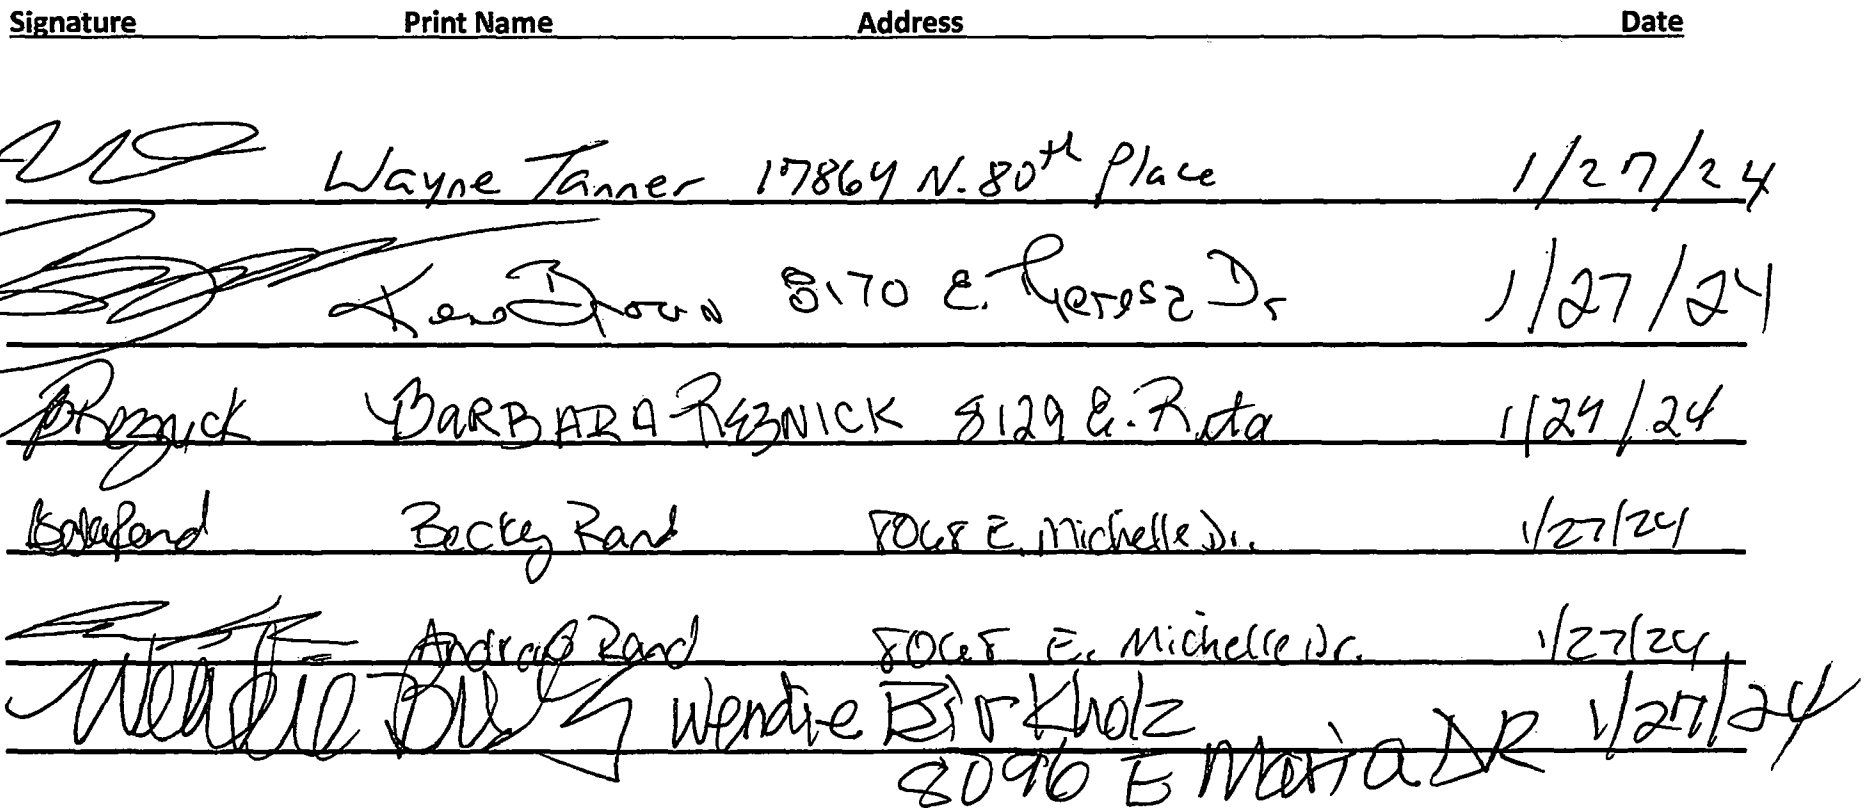 Signature Print Name Address Date
Wayne Tanner 17864 N. 80th Place 1/27/24
Brown 8170 E. Theresa Dr 1/27/24
BReznick BARBARA REZNICK 8129 E. Rita 1/24/24
Becky Rand 8068 E. Michelle Dr. 1/27/24
Rand 8068 E. Michelle Dr. 1/27/24
Wendie Wendie Birkholz 1/27/24
8096 E Maria DR